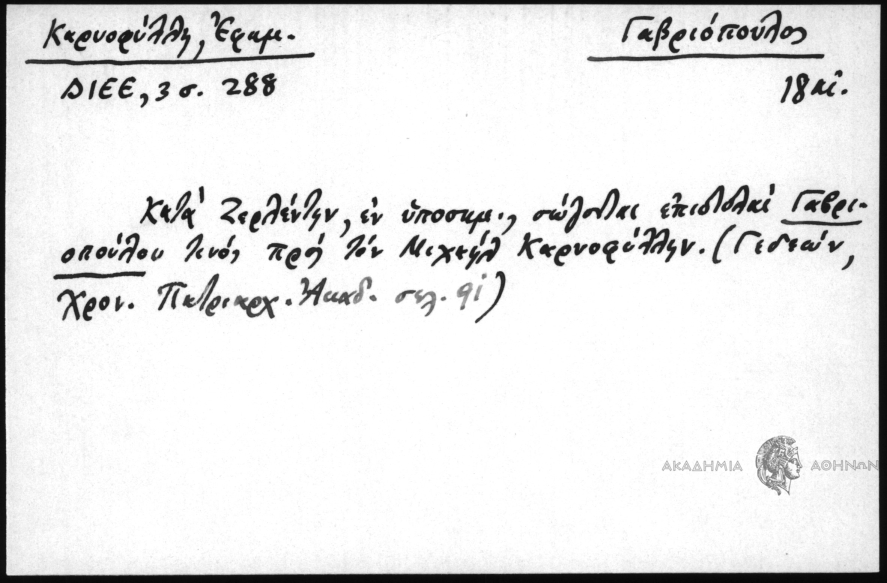 Καρυοφύλλη, Ἐφημ. Γαβριόπουλος
ΔΙΕΕ, 3 σ. 288 18 αἰ.
Κατὰ Ζερλέντην, ἐν ὑποσημ., σώζονται ἐπιστολαὶ Γαβρι-
οπούλου τινός πρὸς τὸν Μιχαὴλ Καρυοφύλλην. (Γεδεών,
Χρον. Πατριαρχ. Ἀκαδ. σελ. 91)
ΑΚΑΔΗΜΙΑ ΑΘΗΝΩΝ